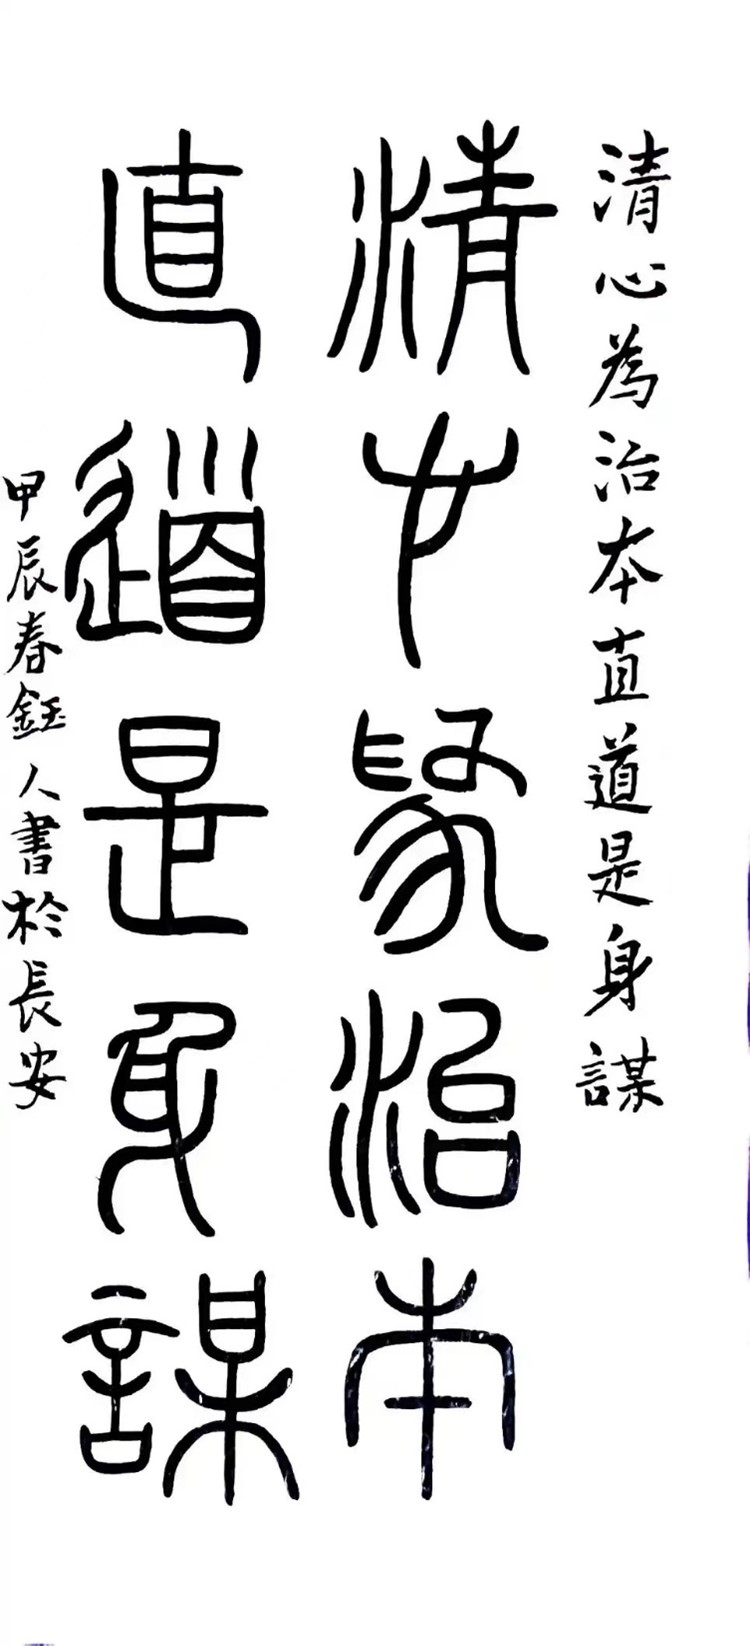 清心為治本直道是身謀
清心為治本
直道是身謀
甲辰春鈺人書於長安